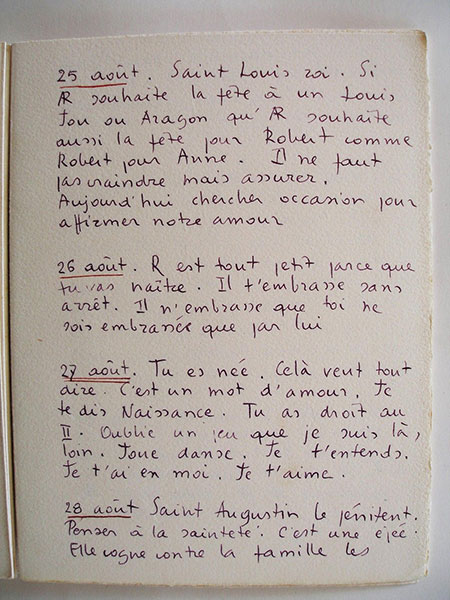 25 août. Saint Louis roi. Si
AR souhaite la fête à un Louis
fou ou Aragon qu'AR souhaite
aussi la fête pour Robert comme
Robert pour Anne. Il ne faut
pas craindre mais assurer.
Aujourd'hui chercher occasion pour
affirmer notre amour
26 août. R est tout petit parce que
tu vas naître. Il t'embrasse sans
arrêt. Il n'embrasse que toi ne
sois embrassée que par lui
27 août. Tu es née. Celà veut tout
dire. C'est un mot d'amour. Je
te dis Naissance. Tu as droit au
II. Oublie un peu que je suis là,
loin. Joue danse. Je t'entends.
Je t'ai en moi. Je t'aime.
28 août Saint Augustin le pénitent.
Penser à la sainteté. C'est une épée.
Elle cogne contre la famille les